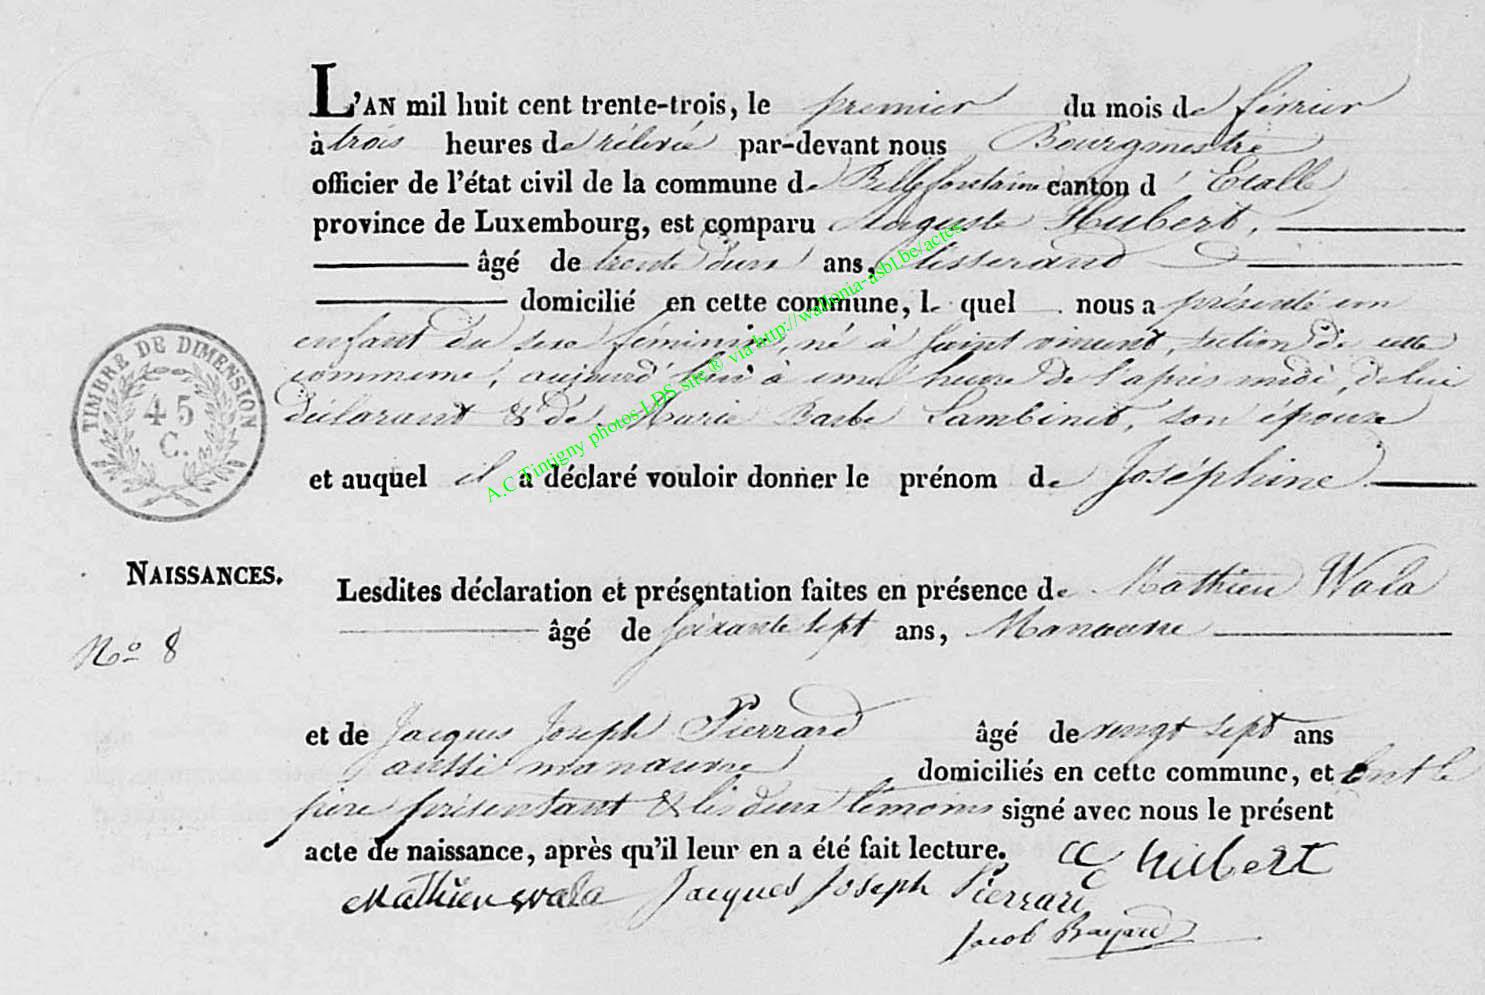 L'AN mil huit cent trente-trois, le premier du mois de février
à trois heures de rélevée par-devant nous Bourgmestre
officier de l'état civil de la commune de Bellefontaine canton d'Etalle
province de Luxembourg, est comparu Auguste Hubert,
âgé de trente deux ans, tisserand
domicilié en cette commune, lequel nous a présenté un
enfant du sexe féminin, né à saint vincent, section de cette
commune, aujourd'hui à une heure de l'après midi, de lui
déclarant & de Marie Barbe Lambinet, son épouse
et auquel il a déclaré vouloir donner le prénom de Joséphine
TIMBRE DE DIMENSION
45
C.
NAISSANCES.
No 8
Lesdites déclaration et présentation faites en présence de Mathieu Wala
âgé de soixante sept ans, Manœuvre
et de Jacques Joseph Pierrard âgé de vingt sept ans
aussi manœuvre domiciliés en cette commune, et ont le
père présentant & les deux témoins signé avec nous le présent
acte de naissance, après qu'il leur en a été fait lecture. A hubert
Mathieu wala Jacques Joseph Pierrard
Jacob
A.C Tintigny photos-LDS site ® via http://wallonia-asbl.be/actes